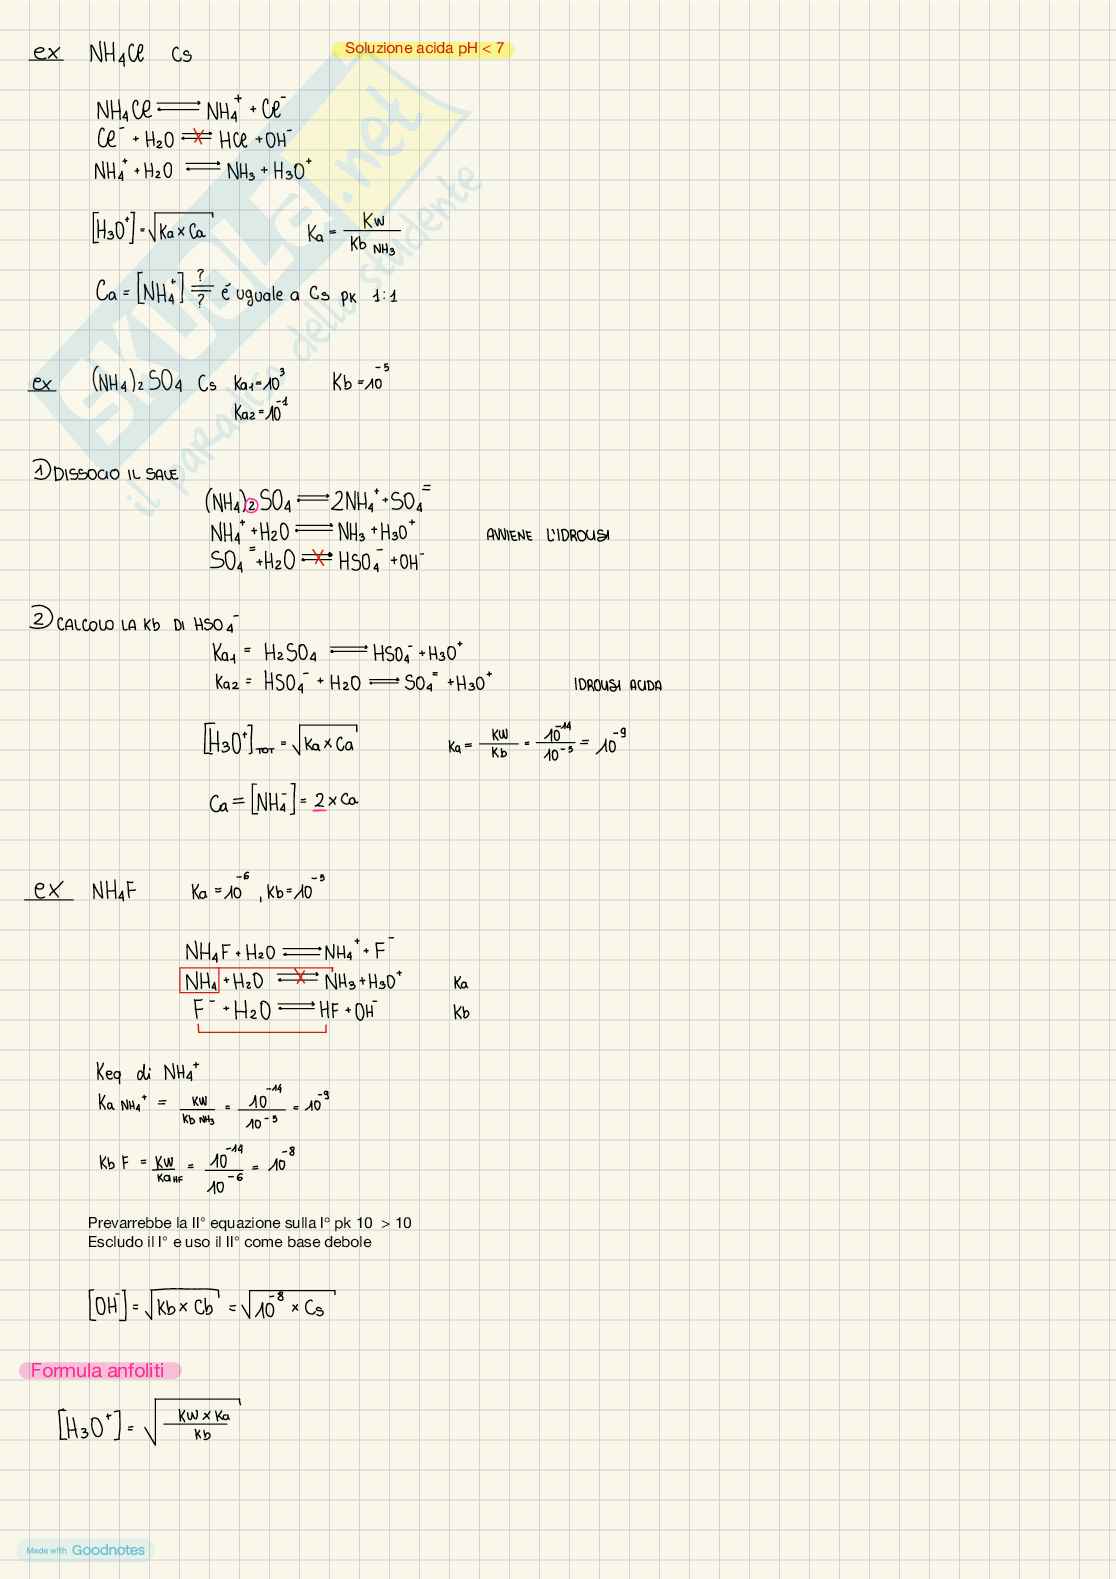 ex NH₄Cl Cs Soluzione acida pH < 7
NH₄Cl ⇌ NH₄⁺ + Cl⁻
Cl⁻ + H₂O ⇌ HCl + OH⁻
NH₄⁺ + H₂O ⇌ NH₃ + H₃O⁺
[H₃O⁺] = √(Ka × Ca) Ka = Kw / Kb NH₃
Ca = [NH₄⁺] ?=? é uguale a Cs pk 1:1
ex (NH₄)₂SO₄ Cs Ka₁=10³ Kb=10⁻⁵
Ka₂=10⁻¹
1) DISSOCIO IL SALE
(NH₄)₂SO₄ ⇌ 2NH₄⁺ + SO₄⁼
NH₄⁺ + H₂O ⇌ NH₃ + H₃O⁺ AVVIENE L'IDROLISI
SO₄⁼ + H₂O ⇌ HSO₄⁻ + OH⁻
2) CALCOLO LA Kb DI HSO₄⁻
Ka₁ = H₂SO₄ ⇌ HSO₄⁻ + H₃O⁺
Ka₂ = HSO₄⁻ + H₂O ⇌ SO₄⁼ + H₃O⁺ IDROLISI ACIDA
[H₃O⁺]TOT = √(Ka × Ca) Ka = Kw / Kb = 10⁻¹⁴ / 10⁻⁵ = 10⁻⁹
Ca = [NH₄⁻] = 2 × Ca
ex NH₄F Ka = 10⁻⁶ , Kb = 10⁻⁵
NH₄F + H₂O ⇌ NH₄⁺ + F⁻
NH₄ + H₂O ⇌ NH₃ + H₃O⁺ Ka
F⁻ + H₂O ⇌ HF + OH⁻ Kb
Keq di NH₄⁺
Ka NH₄⁺ = Kw / Kb NH₃ = 10⁻¹⁴ / 10⁻⁵ = 10⁻⁹
Kb F = Kw / Ka HF = 10⁻¹⁴ / 10⁻⁶ = 10⁻⁸
Prevarrebbe la II° equazione sulla I° pk 10 > 10
Escludo il I° e uso il II° come base debole
[OH⁻] = √(Kb × Cb) = √(10⁻⁸ × Cs)
Formula anfoliti
[H₃O⁺] = √(Kw × Ka / Kb)
Made with Goodnotes
SKUOLA.net
il paradiso dello studente